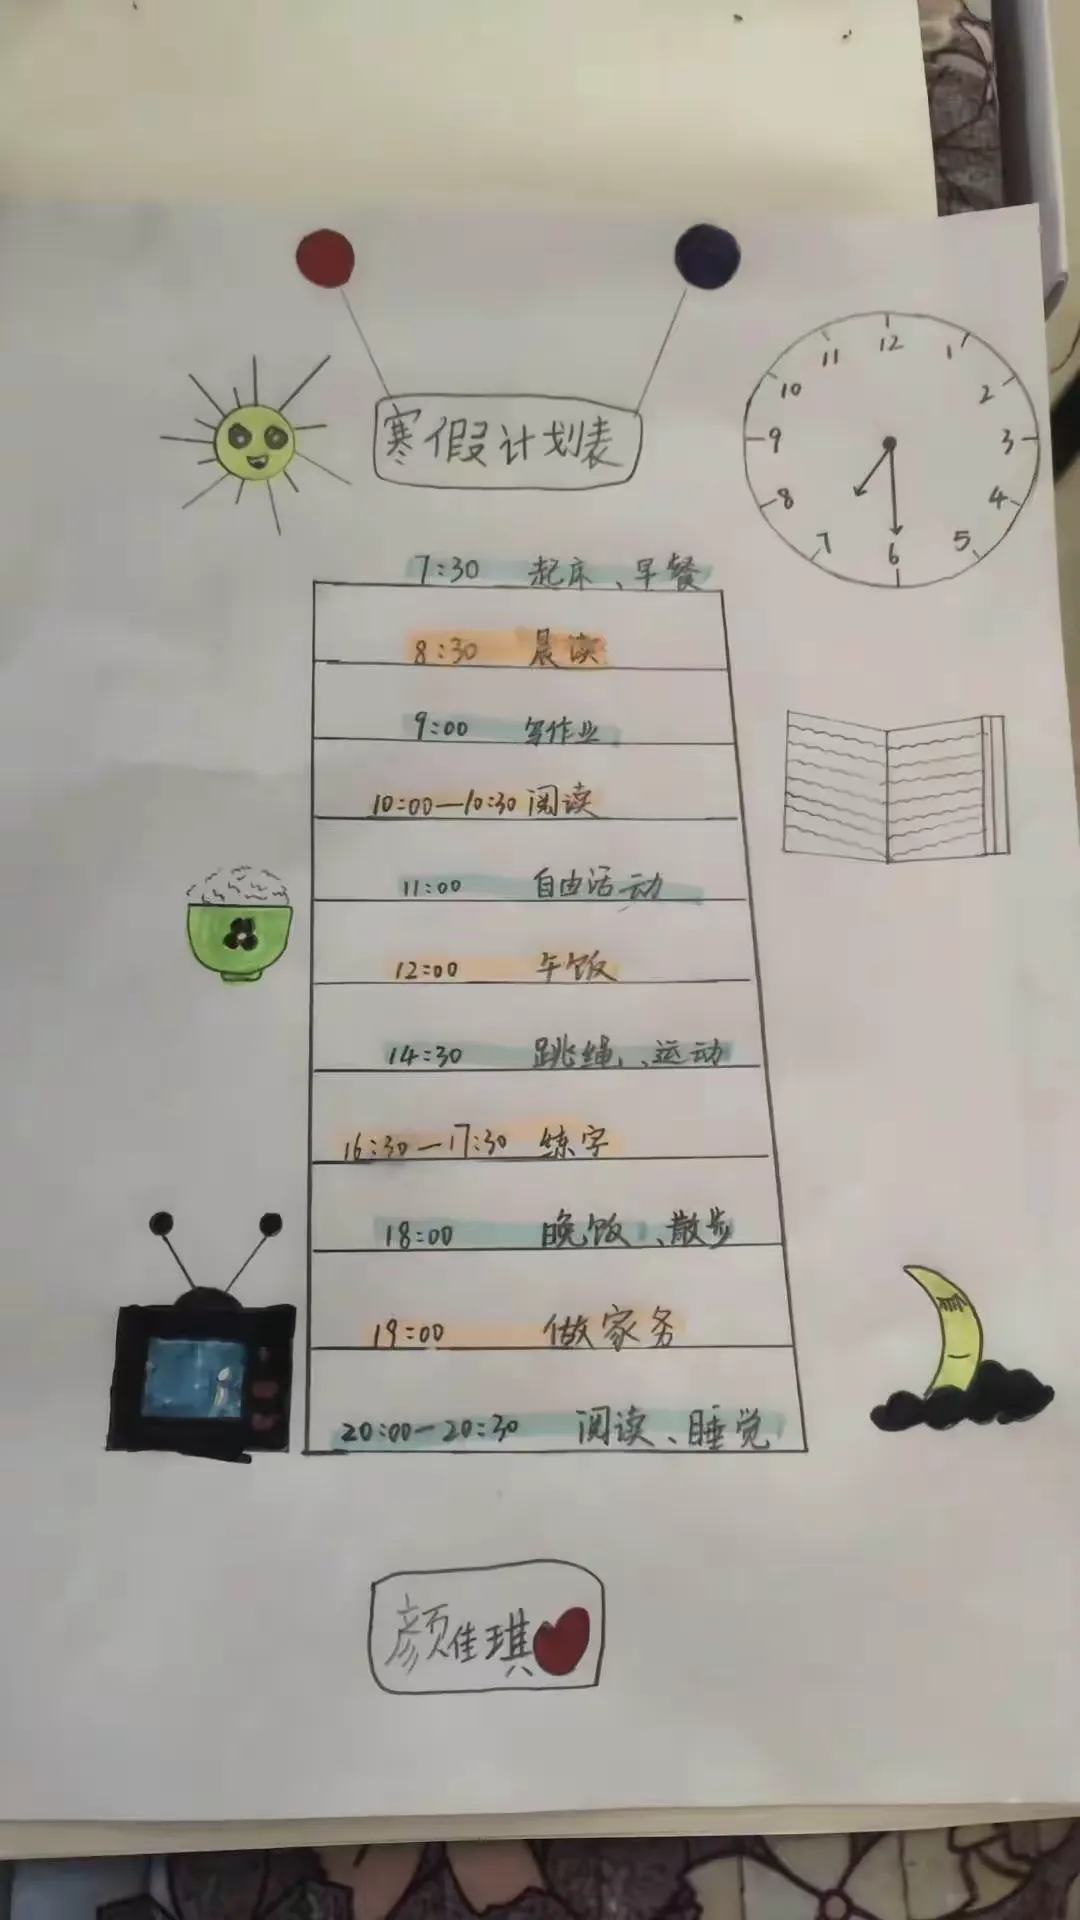 寒假计划表
12
11
1
10
2
9
3
8
4
7
5
6
7:30 起床、早餐
8:30 晨读
9:00 写作业
10:00—10:30 阅读
11:00 自由活动
12:00 午饭
14:30 跳绳、运动
16:30—17:30 练字
18:00 晚饭、散步
19:00 做家务
20:00—20:30 阅读、睡觉
颜佳琪